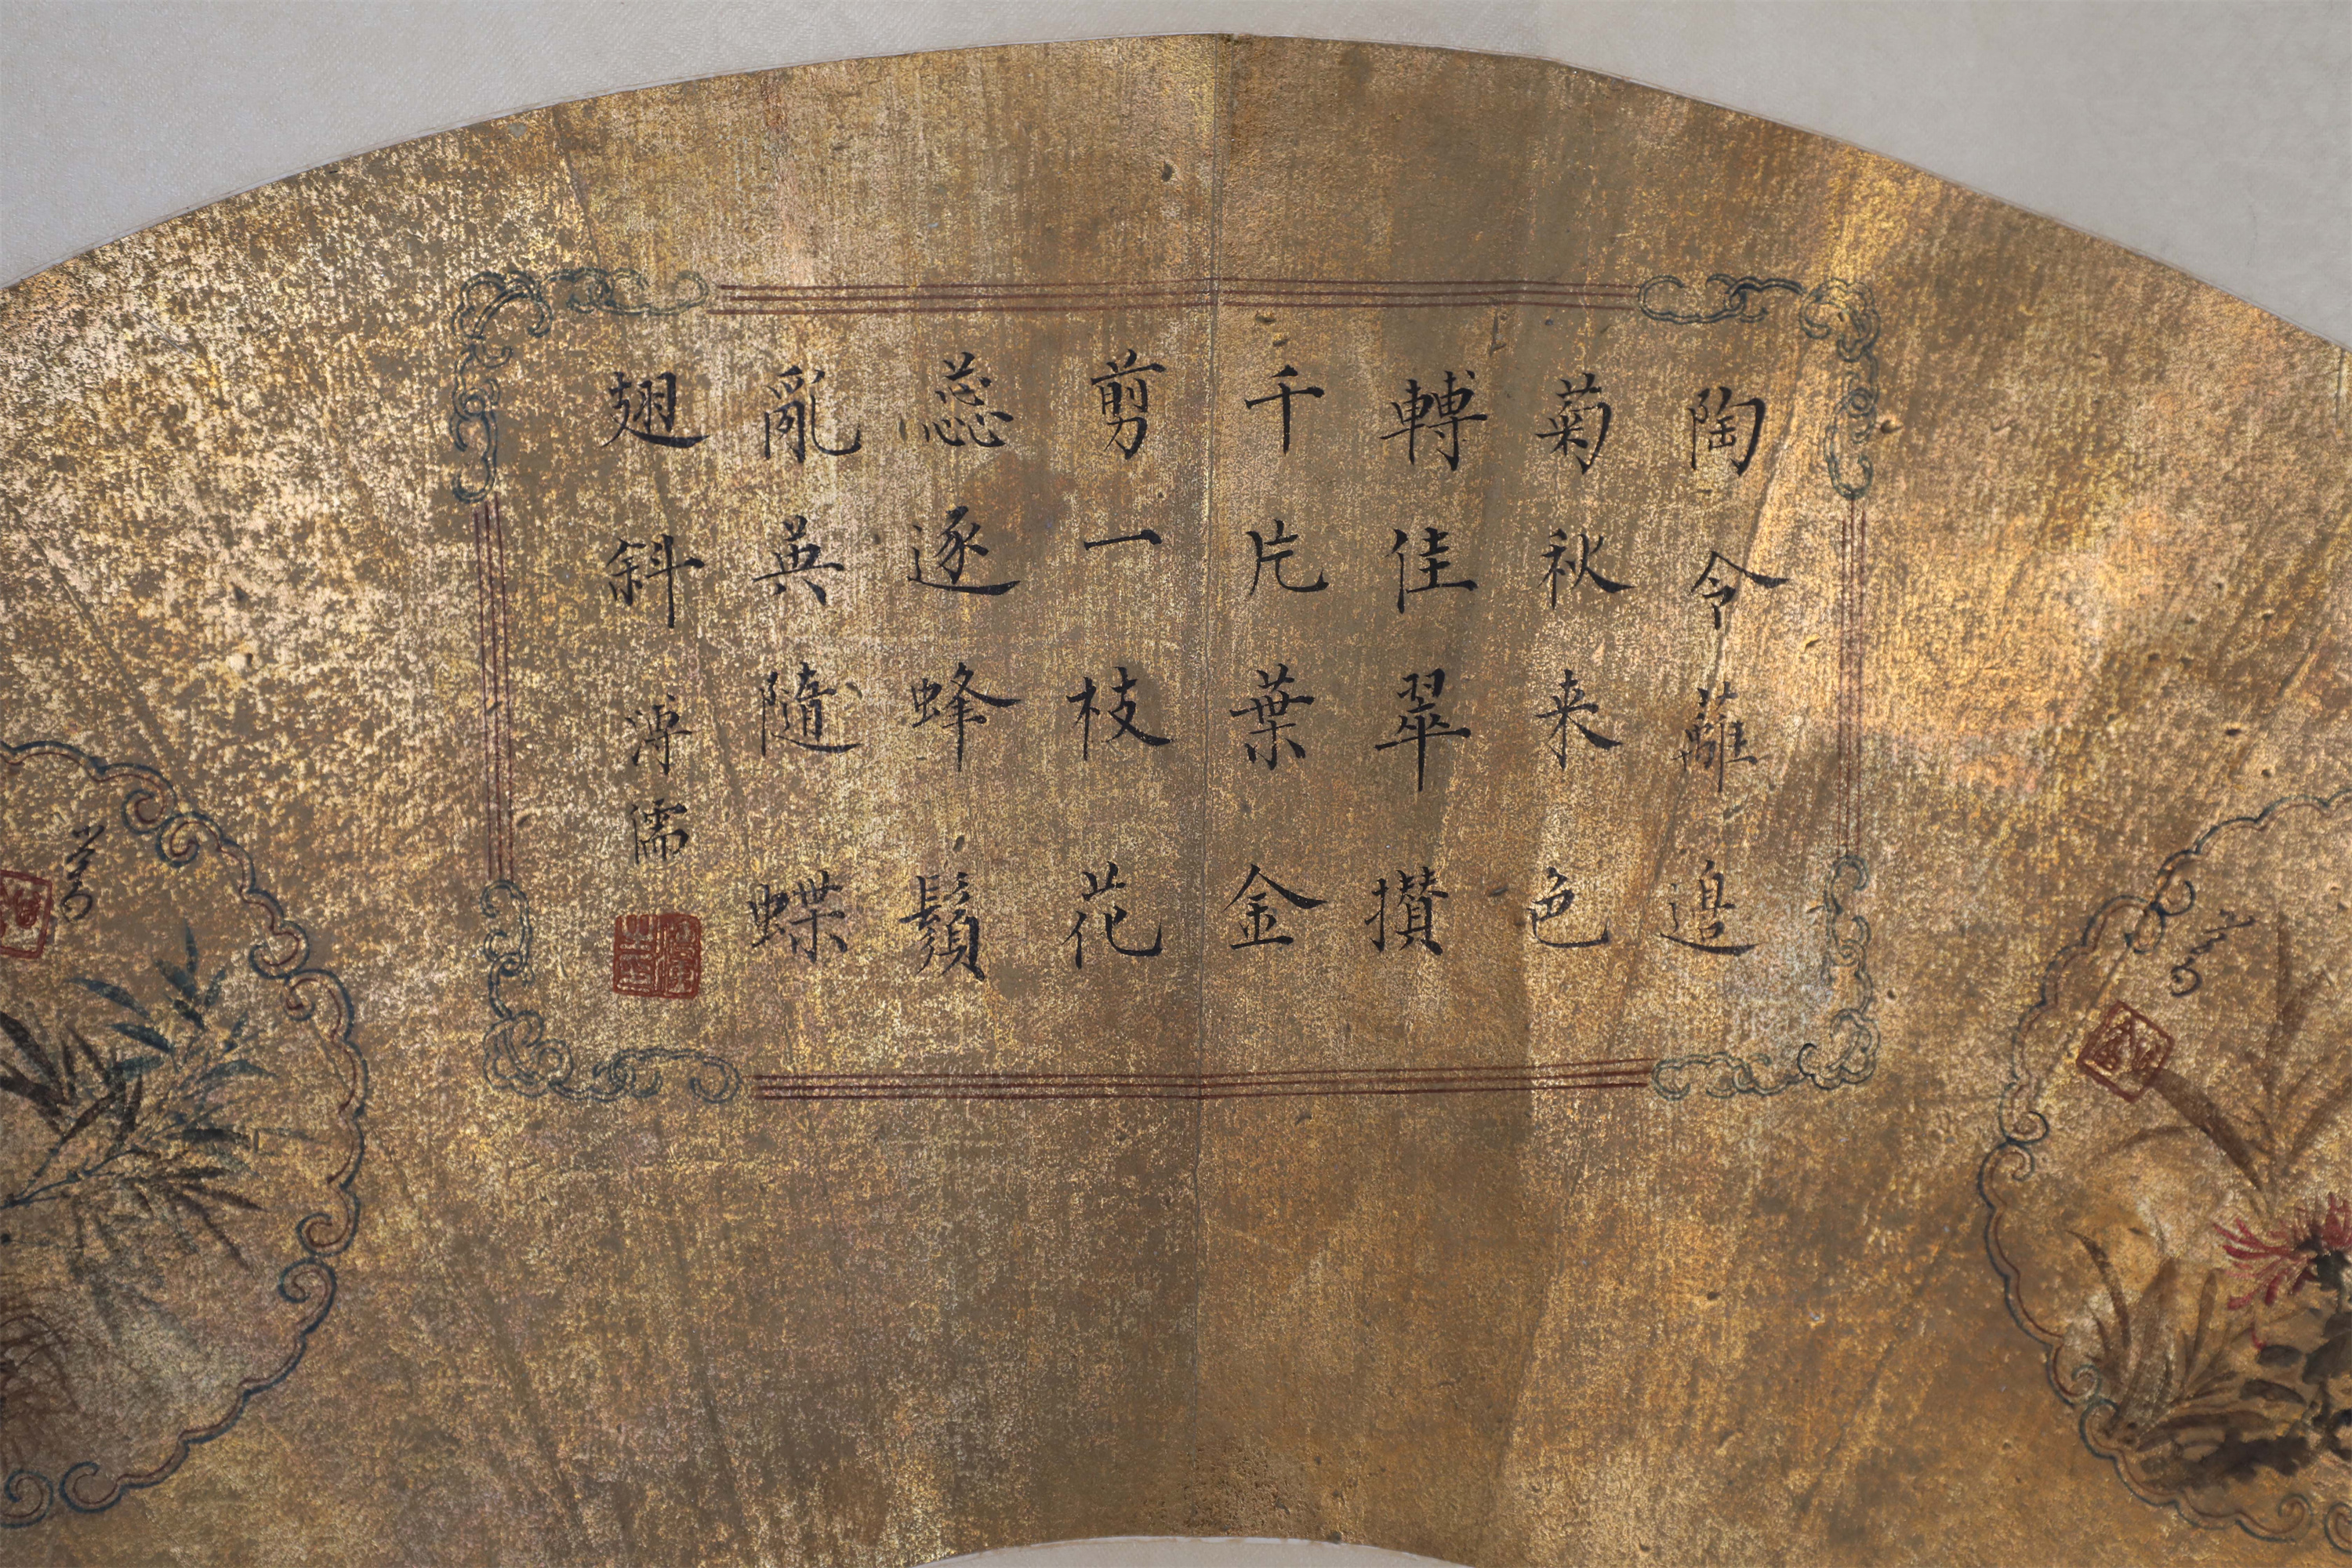 陶令蘺邊
菊秋来色
轉佳翠攢
千片葉金
剪一枝花
蕊逐蜂鬚
亂英隨蝶
翅斜 溥儒